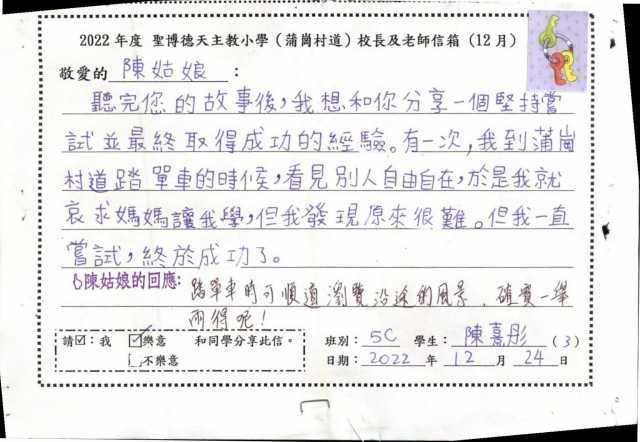 2022 年度 聖博德天主教小學(蒲崗村道)校長及老師信箱(12月)
敬愛的 陳姑娘 :
聽完您的故事後,我想和你分享一個堅持嘗
試並最終取得成功的經驗。有一次,我到蒲崗
村道踏單車的時候,看見別人自由自在,於是我就
哀求媽媽讓我學,但我發現原來很難。但我一直
嘗試,終於成功了。
陳姑娘的回應: 踏單車時可順道瀏覽沿途的風景,確實一舉
兩得呢!
請☑:我 ☑樂意 和同學分享此信。 班別: 5C 學生: 陳嘉彤 (3)
□不樂意 日期: 2022 年 12 月 24 日